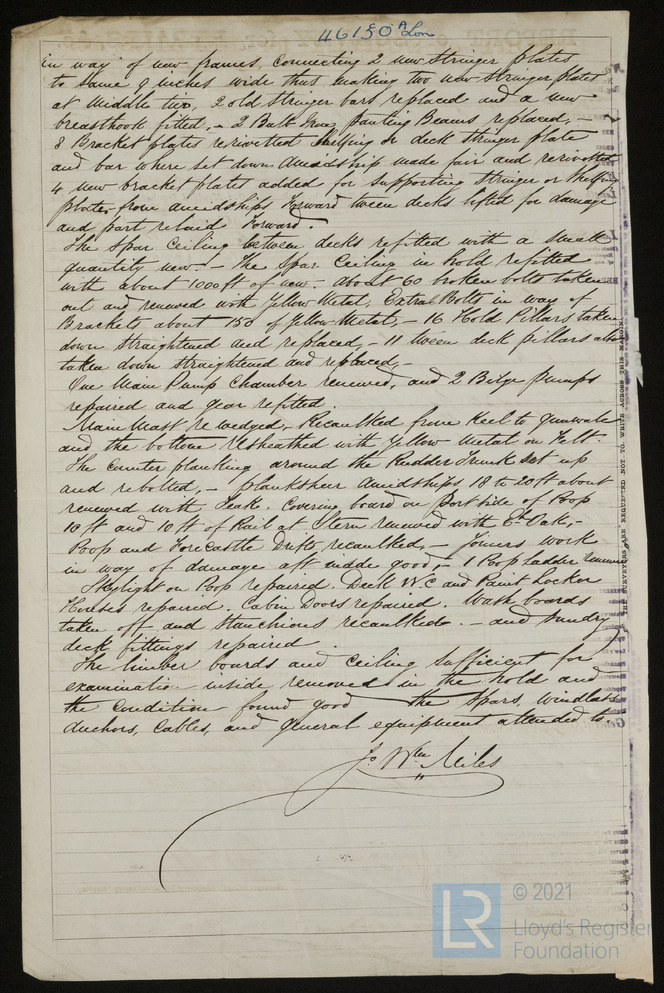 46150 Lon
in way of new frames, connecting 2 new Stringer plates
to same 9 inches wide thus making two new Stringer plates
at middle two, 2 old Stringer bars replaced and a new
breasthook fitted, - 2 Bulb Iron panting Beams replaced, -
8 Bracket plates rerivetted Shelfing or deck stringer plate
and bar where set down Amidship made fair and rerivetted
4 new bracket plates added for supporting Stringer or
plates from amidships forward tween decks lifted for damage
and part relaid Forward.
The Spar Ceiling between decks refitted with a small
quantity new. - The Spar Ceiling in hold refitted
with about 1000 ft of new. About 60 broken bolts taken
out and renewed with Yellow Metal, Extra Bolts in way of
Brackets about 150 of Yellow Metal, - 16 Hold Pillars taken
down Straightened and replaced, - 11 tween deck pillars also
taken down Straightened and replaced, -
One Main Pump Chamber renewed, and 2 Bilge Pumps
repaired and gear refitted
Main Mast re wedged, Recaulked from Keel to gunwale
and the bottom resheathed with Yellow Metal on Felt.
The Counter planking around the Rudder Trunk set up
and rebolted, - planksheer Amidships 18 to 20 ft about
renewed with Teak. Covering board on Port side of Poop
10 ft and 10 ft of Rail at Stern renewed with E. Oak, -
Poop and Forecastle Drifts recaulked, - Joiners work
in way of damage aft made good, - 1 Poop ladder renewed
Skylight on Poop repaired. Deck W.C and Paint Locker
Houses repaired. Cabin Doors repaired. Wash boards
taken off and Stanchions recaulked. - and Sundry
deck fittings repaired
The limber boards and ceiling sufficient for
examinatio. inside removed in the hold and
the condition found good the Spars, windlass
Anchors, Cables, and general equipment attended to.
Jo. Wm Miles
THE SURVEYORS ARE REQUESTED NOT TO WRITE ACROSS THIS MARGIN.
LR
© 2021
Lloyd's Register
Foundation